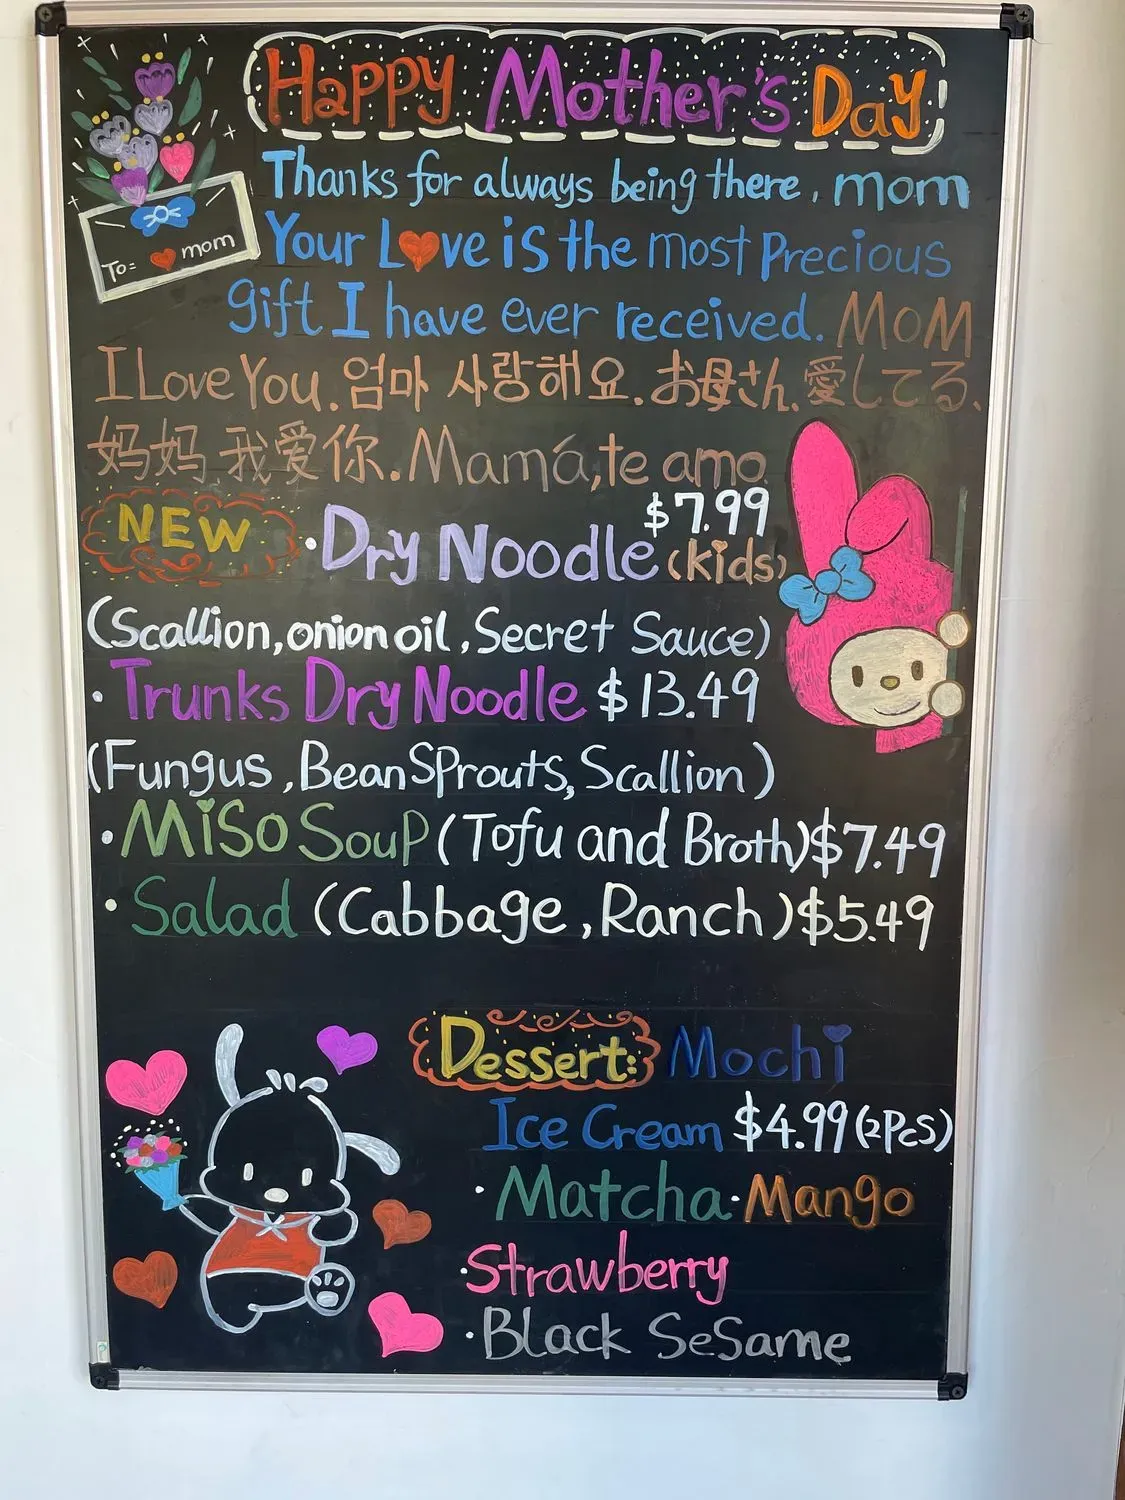 Happy Mother's Day
Thanks for always being there, mom
To= ❤ mom
Your L❤ve is the most Precious
gift I have ever received. MOM
I Love You. 엄마 사랑해요. お母さん、愛してる、
妈妈 我爱你. Mamá, te amo
NEW
$7.99
• Dry Noodle (kids)
(Scallion, onion oil, Secret Sauce)
• Trunks Dry Noodle $13.49
(Fungus, Bean SProuts, Scallion)
• Miso Soup (Tofu and Broth) $7.49
• Salad (Cabbage, Ranch) $5.49
Dessert: Mochi
Ice Cream $4.99 (2Pcs)
• Matcha • Mango
• Strawberry
• Black SeSame